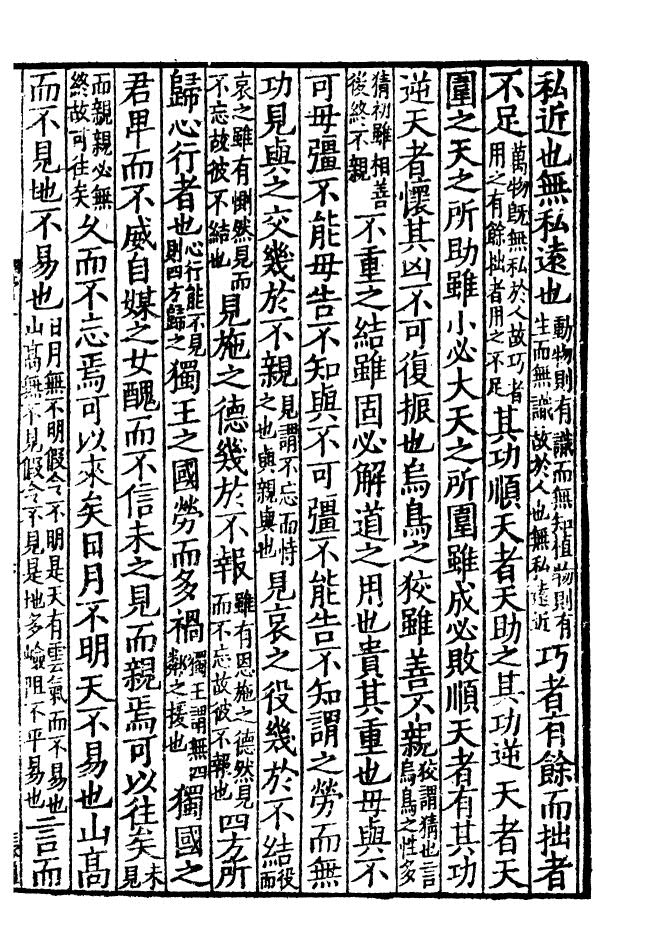 私近也無私遠也動物則有識而無知植物則有生而無識故於人也無私遠近巧者有餘而拙者
不足萬物既無私於人故巧者用之有餘拙者用之不足其功順天者天助之其功逆天者天
圍之天之所助雖小必大天之所圍雖成必敗順天者有其功
逆天者懷其凶不可復振也烏鳥之狡雖善不親狡謂猜也言烏鳥之性多
猜初雖相善後終不親不重之結雖固必解道之用也貴其重也毋與不
可毋彊不能毋告不知與不可彊不能告不知謂之勞而無
功見與之交幾於不親見謂不忘而恃之也與親與也見哀之役幾於不結役而
哀之雖有惻然見而不忘故彼不結也見施之德幾於不報雖有恩施之德然見而不忘故彼不報也四方所
歸心行者也心行能不見則四方歸之獨王之國勞而多禍獨王謂無四鄰之援也獨國之
君卑而不威自媒之女醜而不信未之見而親焉可以往矣未見
而親親必無終故可往矣久而不忘焉可以來矣日月不明天不易也山高
而不見地不易也日月無不明假令不明是天有雲氣而不易也山高無不見假令不見是地多嶮阻不平易也言而